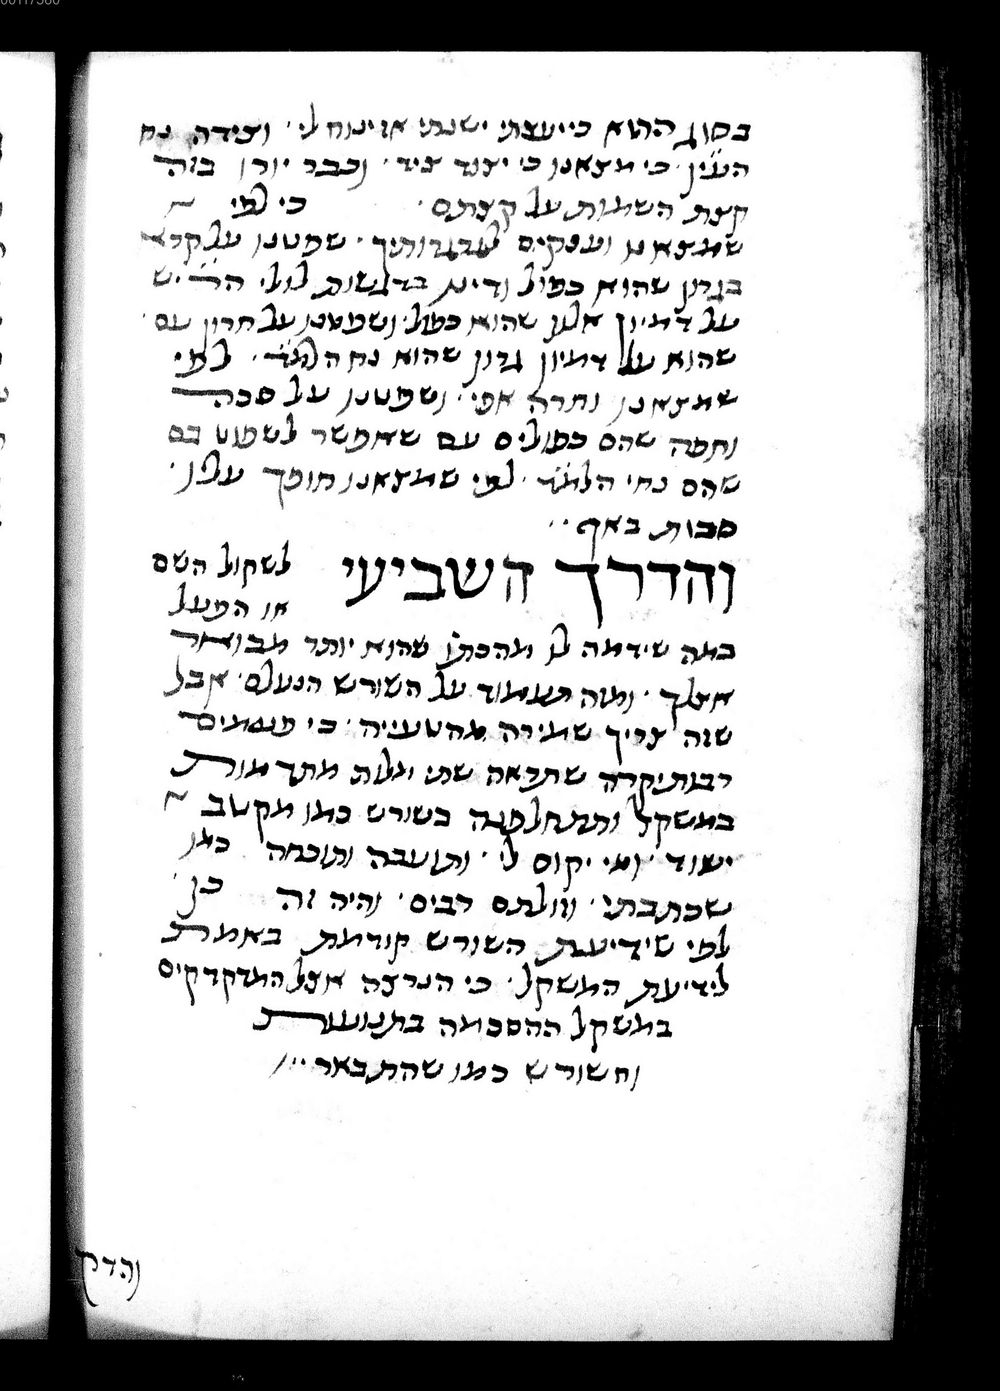 בסוג ההוא כי יעצתי ישנתי אז ינוח לי ׳ וצידה נח
העין ׳ כי מצאנו כי יצוד ציד ׳ וכבר יורן בזה
קצת השמות על קצתם ׳ כי לפי
שמצאנו וענקים לגרגרותיך ׳ שפטנו על קרא
בגרון שהוא כפול ודינן
על דמיון אלון שהוא כפול ׳ ושפטנו על חרון עם
שהוא על דמיון גרון שהוא נח הלמ״ד ׳ לפי
שמצאנו וחרה אפי ׳ ושפטנו על סכה
וחפה שהם כפולים עם שאפשר לשפוט בם
שהם נחי הלמ״ד ׳ לפי שמצאנו חופף עליו ׳
סכות באף ׳׳
והדרך השביעי לשקול השם
או הפועל
במה שידמה לו מהכתו׳ שהוא יותר מבואר
אצלך ׳ ומזה תעמוד על השורש הנעלם ׳ אבל
שזה צריך שמירה מהטעייה ׳ כי פעמים
רבות יקרה שתראה שתי מלות מתדמות
במשקל ותתחלפנה בשורש כמו מקטב
ישוד ׳ ומי יקום לי ׳ ותועבה ותוכחה כמו
שכתבתי ׳ וזולתם רבים ׳ והיה זה כן ׳
לפי שידיעת השורש קודמת באמת
לידיעת המשקל ׳ כי הנרצה אצל המדקדקים
במשקל ההסכמה בתנועות
והשורש כמו שהתבאר ׳׳׳
והדרך